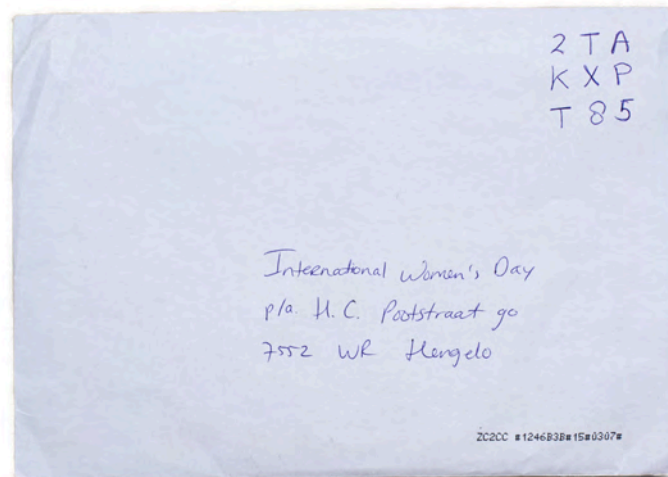 2 T A
K X P
T 8 5
International Women's Day
p/a. H.C. Pootstraat 90
7552 WR Hengelo
ZC2CC #1246B3B#15#0307#